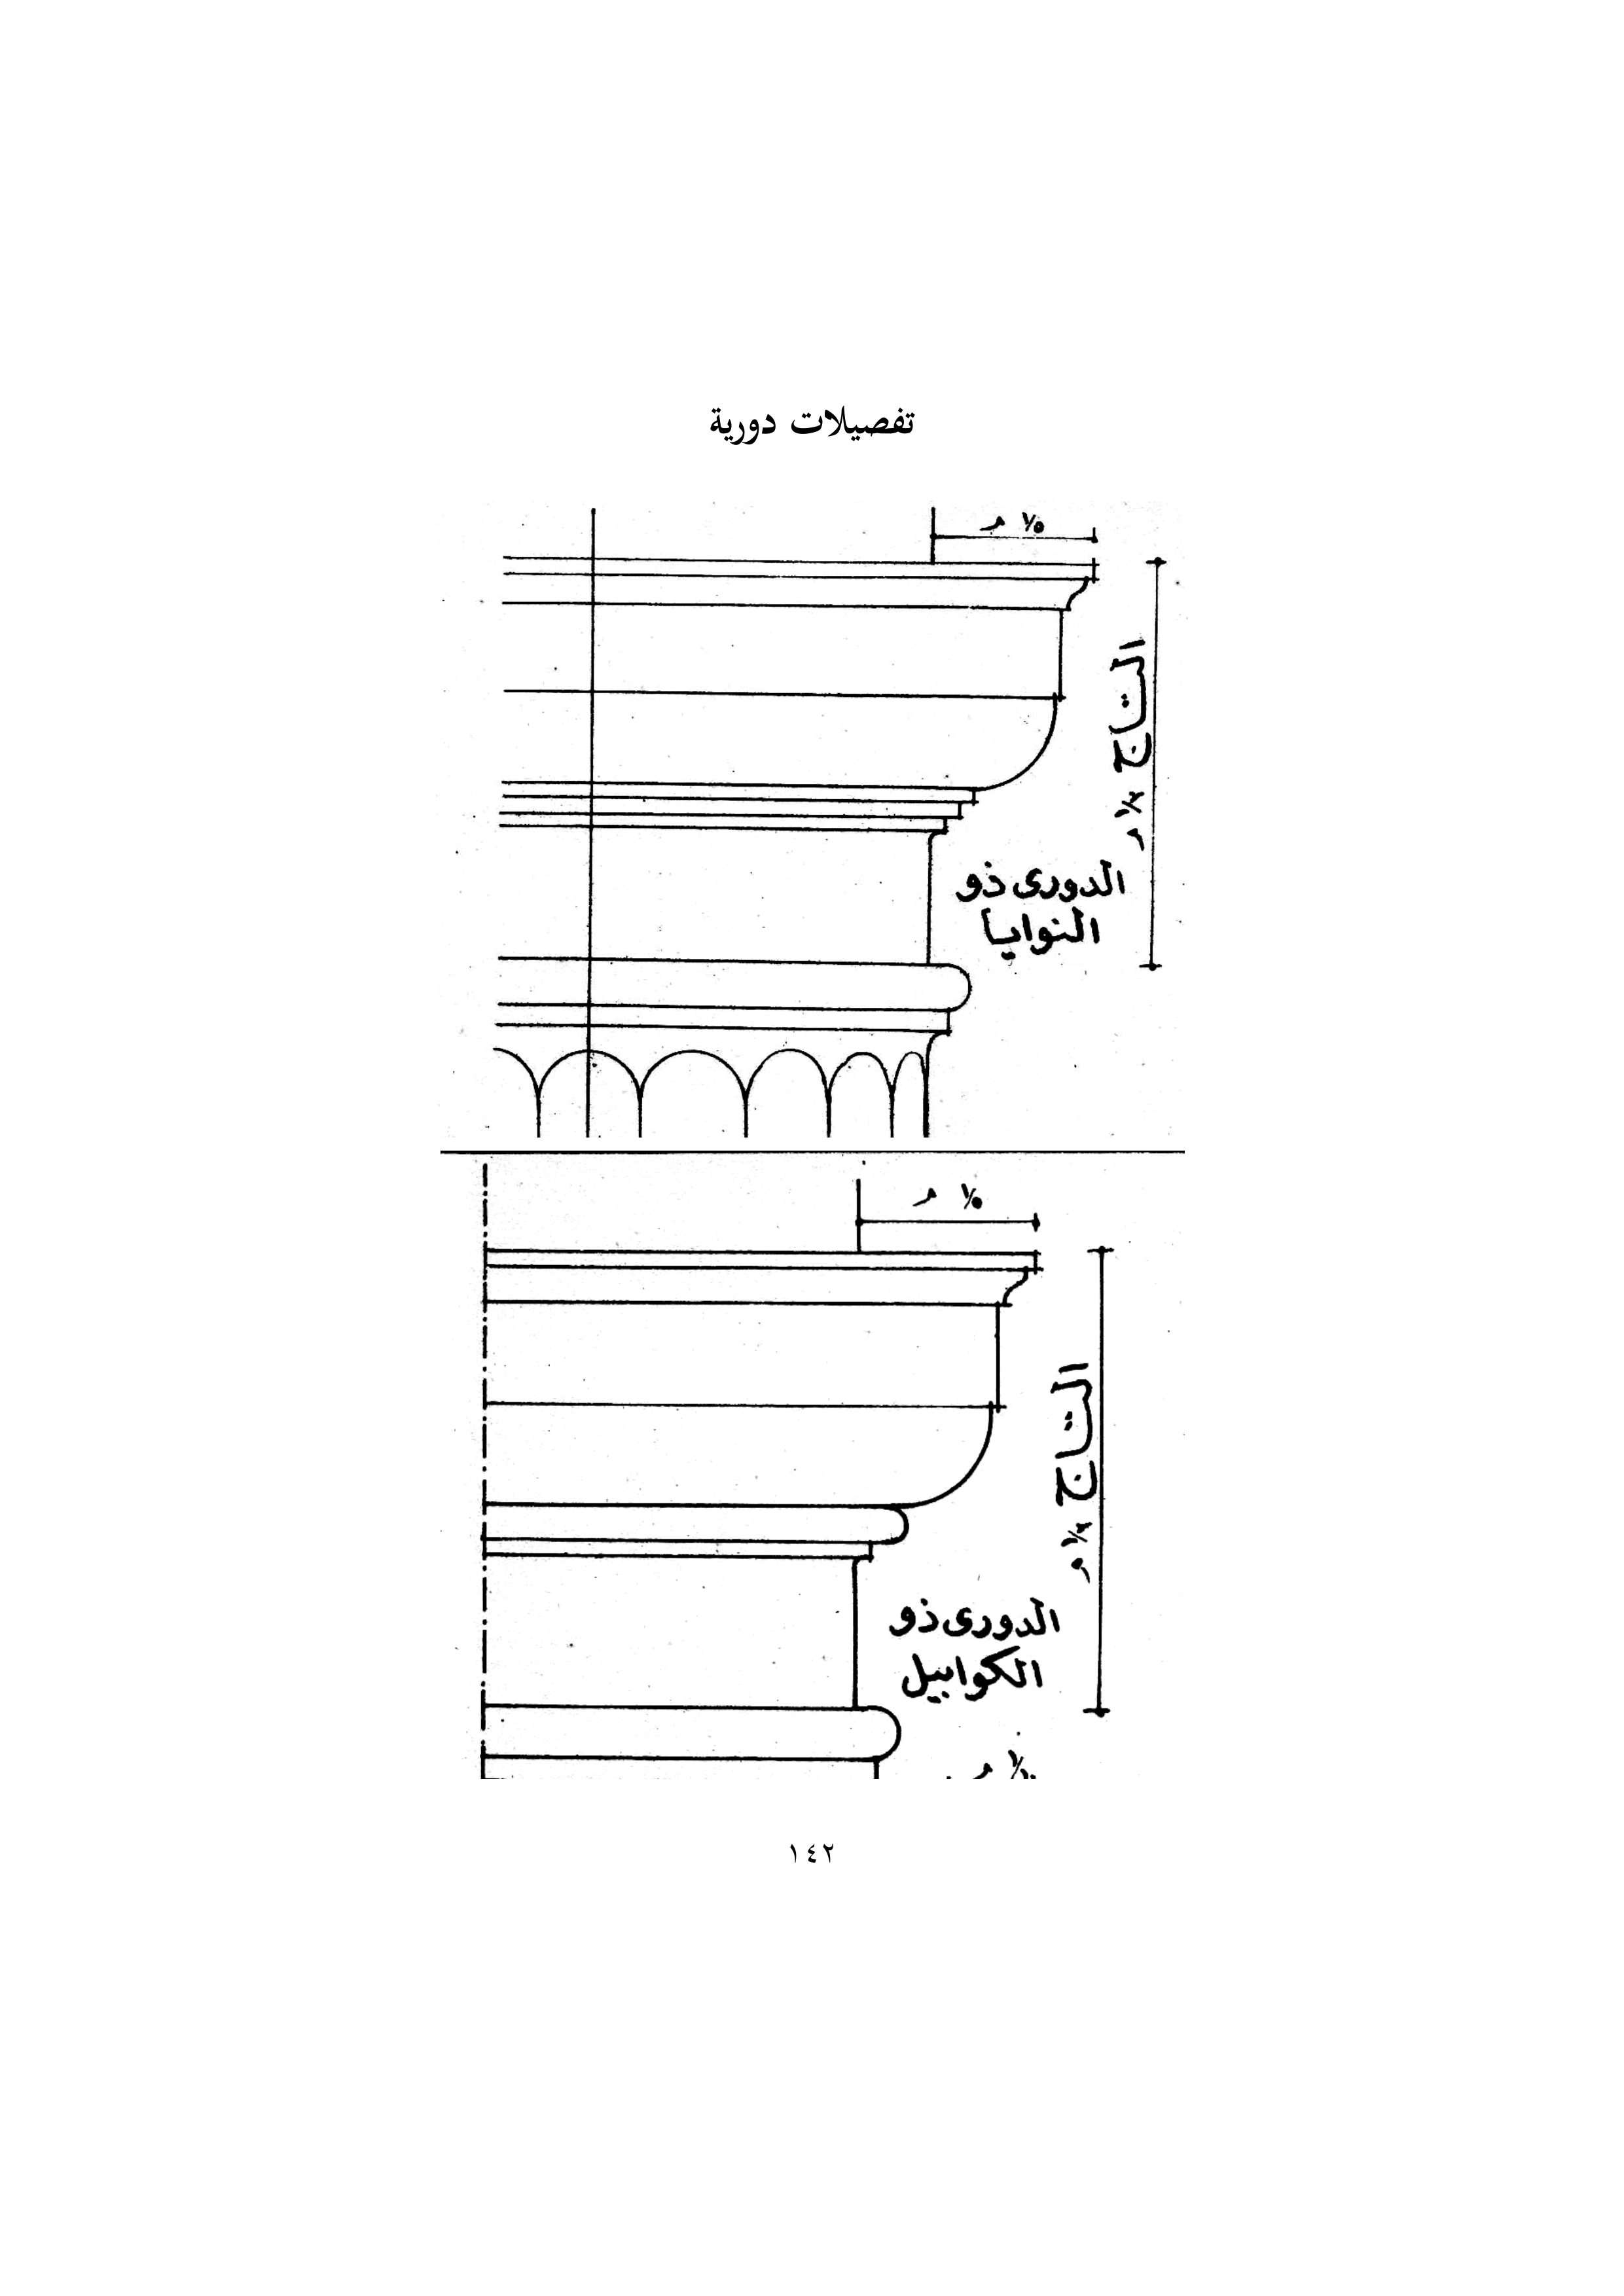 تفصيلات دورية
١/٥ م
التاج ١/٢ م
الدورى ذو
النوايا
١/٥ م
التاج ١/٢ م
الدورى ذو
الكوابيل
١٤٢